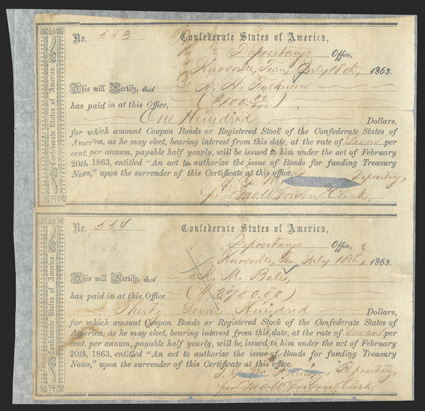 No. 553 Confederate States of America,
Depositary's Office,
Knoxville, Tenn July 18th, 1863.
This will Certify, that
has paid in at this Office, ($100
One Hundred Dollars,
for which amount Coupon Bonds or Registered Stock of the Confederate States of
America, as he may elect, bearing interest from this date, at the rate of Seven per
cent. per annum, payable half yearly, will be issued to him under the act of February
20th, 1863, entitled "An act to authorize the issue of Bonds for funding Treasury
Notes," upon the surrender of this Certificate at this office.
Depositary,
Clerk
Confederate States of America.
No. 554 Confederate States of America,
Depositary's Office,
Knoxville, Ten July 18th, 1863.
This will Certify, that M. Bales
has paid in at this Office
Thirty Seven Hundred Dollars,
for which amount Coupon Bonds or Registered Stock of the Confederate States of
America, as he may elect, bearing interest from this date, at the rate of Seven per
cent. per annum, payable half yearly, will be issued to him under the act of February
20th, 1863, entitled "An act to authorize the issue of Bonds for funding Treasury
Notes," upon the surrender of this Certificate at this office.
Depositary
Clerk
Confederate States of America.